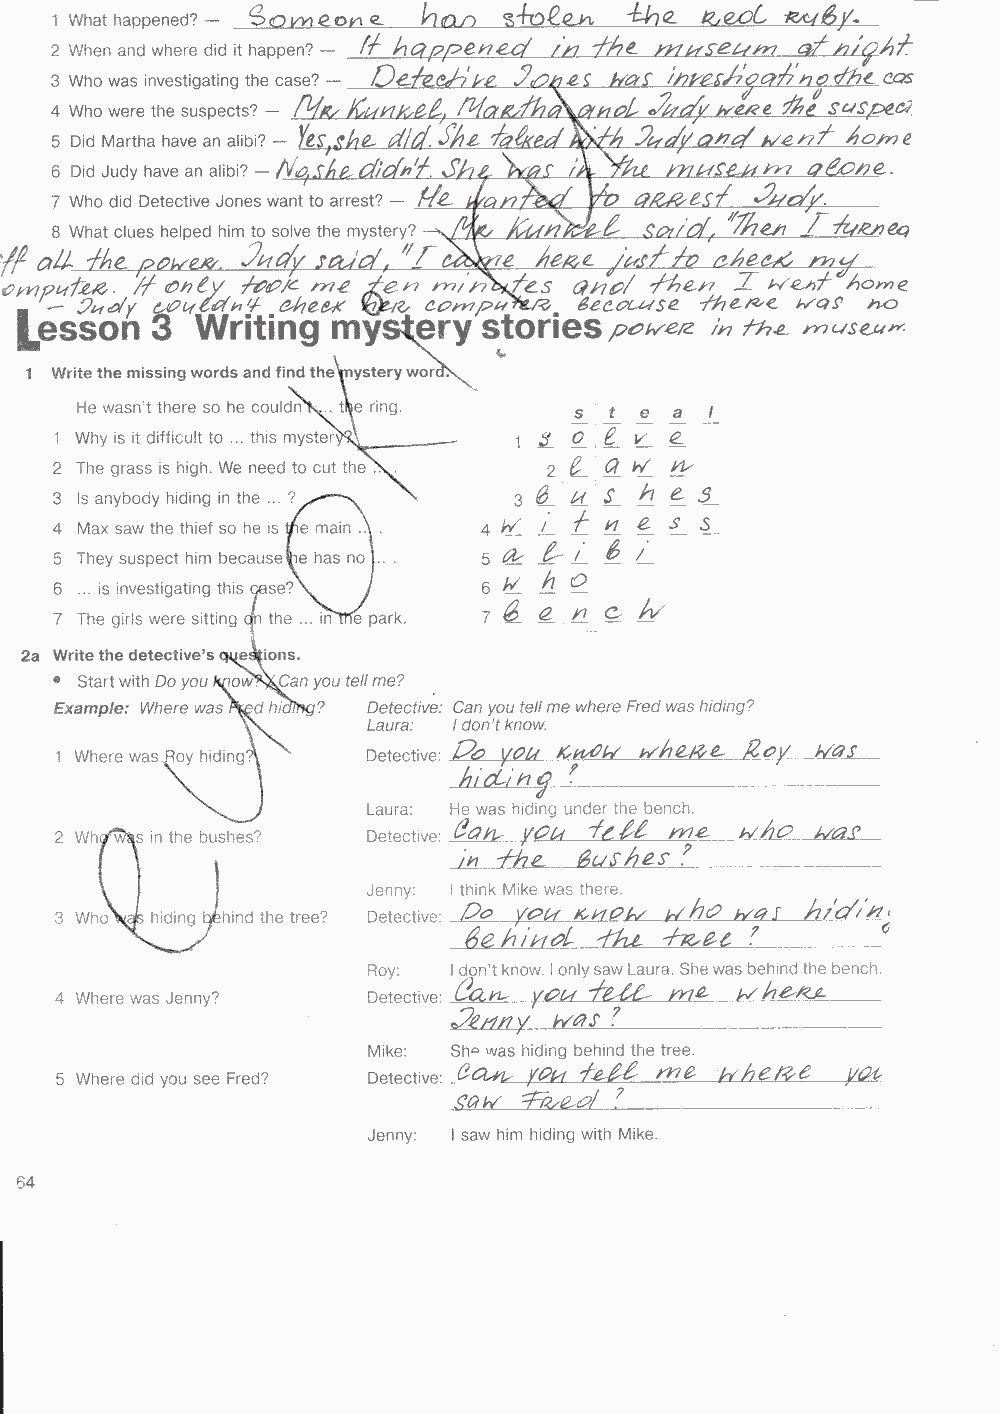 1 What happened? – Someone has stolen the red ruby.
2 When and where did it happen? – It happened in the museum at night.
3 Who was investigating the case? – Detective Jones was investigating the cas
4 Who were the suspects? – Mr Kunkel, Martha and Judy were the suspec
5 Did Martha have an alibi? – Yes, she did. She talked with Judy and went home
6 Did Judy have an alibi? – No, she didn't. She was in the museum alone.
7 Who did Detective Jones want to arrest? – He wanted to arrest Judy.
8 What clues helped him to solve the mystery? – Mr Kunkel said, "Then I turned
ff all the power. Judy said, "I came here just to check my
omputer. It only took me ten minutes and then I went home
– Judy couldn't check her computer, because there was no
power in the museum.
Lesson 3 Writing mystery stories
1 Write the missing words and find the mystery word.
He wasn't there so he couldn't ... the ring. s t e a l
1 Why is it difficult to ... this mystery? 1 s o l v e
2 The grass is high. We need to cut the ... . 2 l a w n
3 Is anybody hiding in the ... ? 3 b u s h e s
4 Max saw the thief so he is the main ... . 4 w i t n e s s
5 They suspect him because he has no ... . 5 a l i b i
6 ... is investigating this case? 6 w h o
7 The girls were sitting on the ... in the park. 7 b e n c h
2a Write the detective's questions.
• Start with Do you know? / Can you tell me?
Example: Where was Fred hiding? Detective: Can you tell me where Fred was hiding?
Laura: I don't know.
1 Where was Roy hiding? Detective: Do you know where Roy was
hiding?
Laura: He was hiding under the bench.
2 Who was in the bushes? Detective: Can you tell me who was
in the bushes?
Jenny: I think Mike was there.
3 Who was hiding behind the tree? Detective: Do you know who was hiding
behind the tree?
Roy: I don't know. I only saw Laura. She was behind the bench.
4 Where was Jenny? Detective: Can you tell me where
Jenny was?
Mike: She was hiding behind the tree.
5 Where did you see Fred? Detective: Can you tell me where you
saw Fred?
Jenny: I saw him hiding with Mike.
64